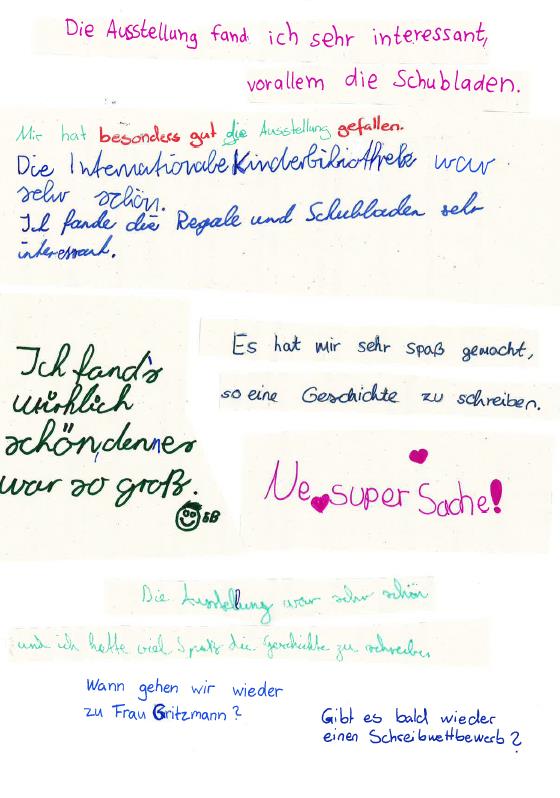 Die Ausstellung fand ich sehr interessant,
vorallem die Schubladen.
Mir hat besonders gut die Ausstellung gefallen.
Die Internationale Kinderbibliothek war
sehr schön.
Ich fande die Regale und Schubladen sehr
interessant.
Ich fand's
wirklich
schön, denn es
war so groß.
Es hat mir sehr spaß gemacht,
so eine Geschichte zu schreiben.
Ne super Sache!
Die Ausstellung war sehr schön
und ich hatte viel Spaß die Geschichte zu schreiben
Wann gehen wir wieder
zu Frau Gritzmann?
Gibt es bald wieder
einen Schreibwettbewerb?